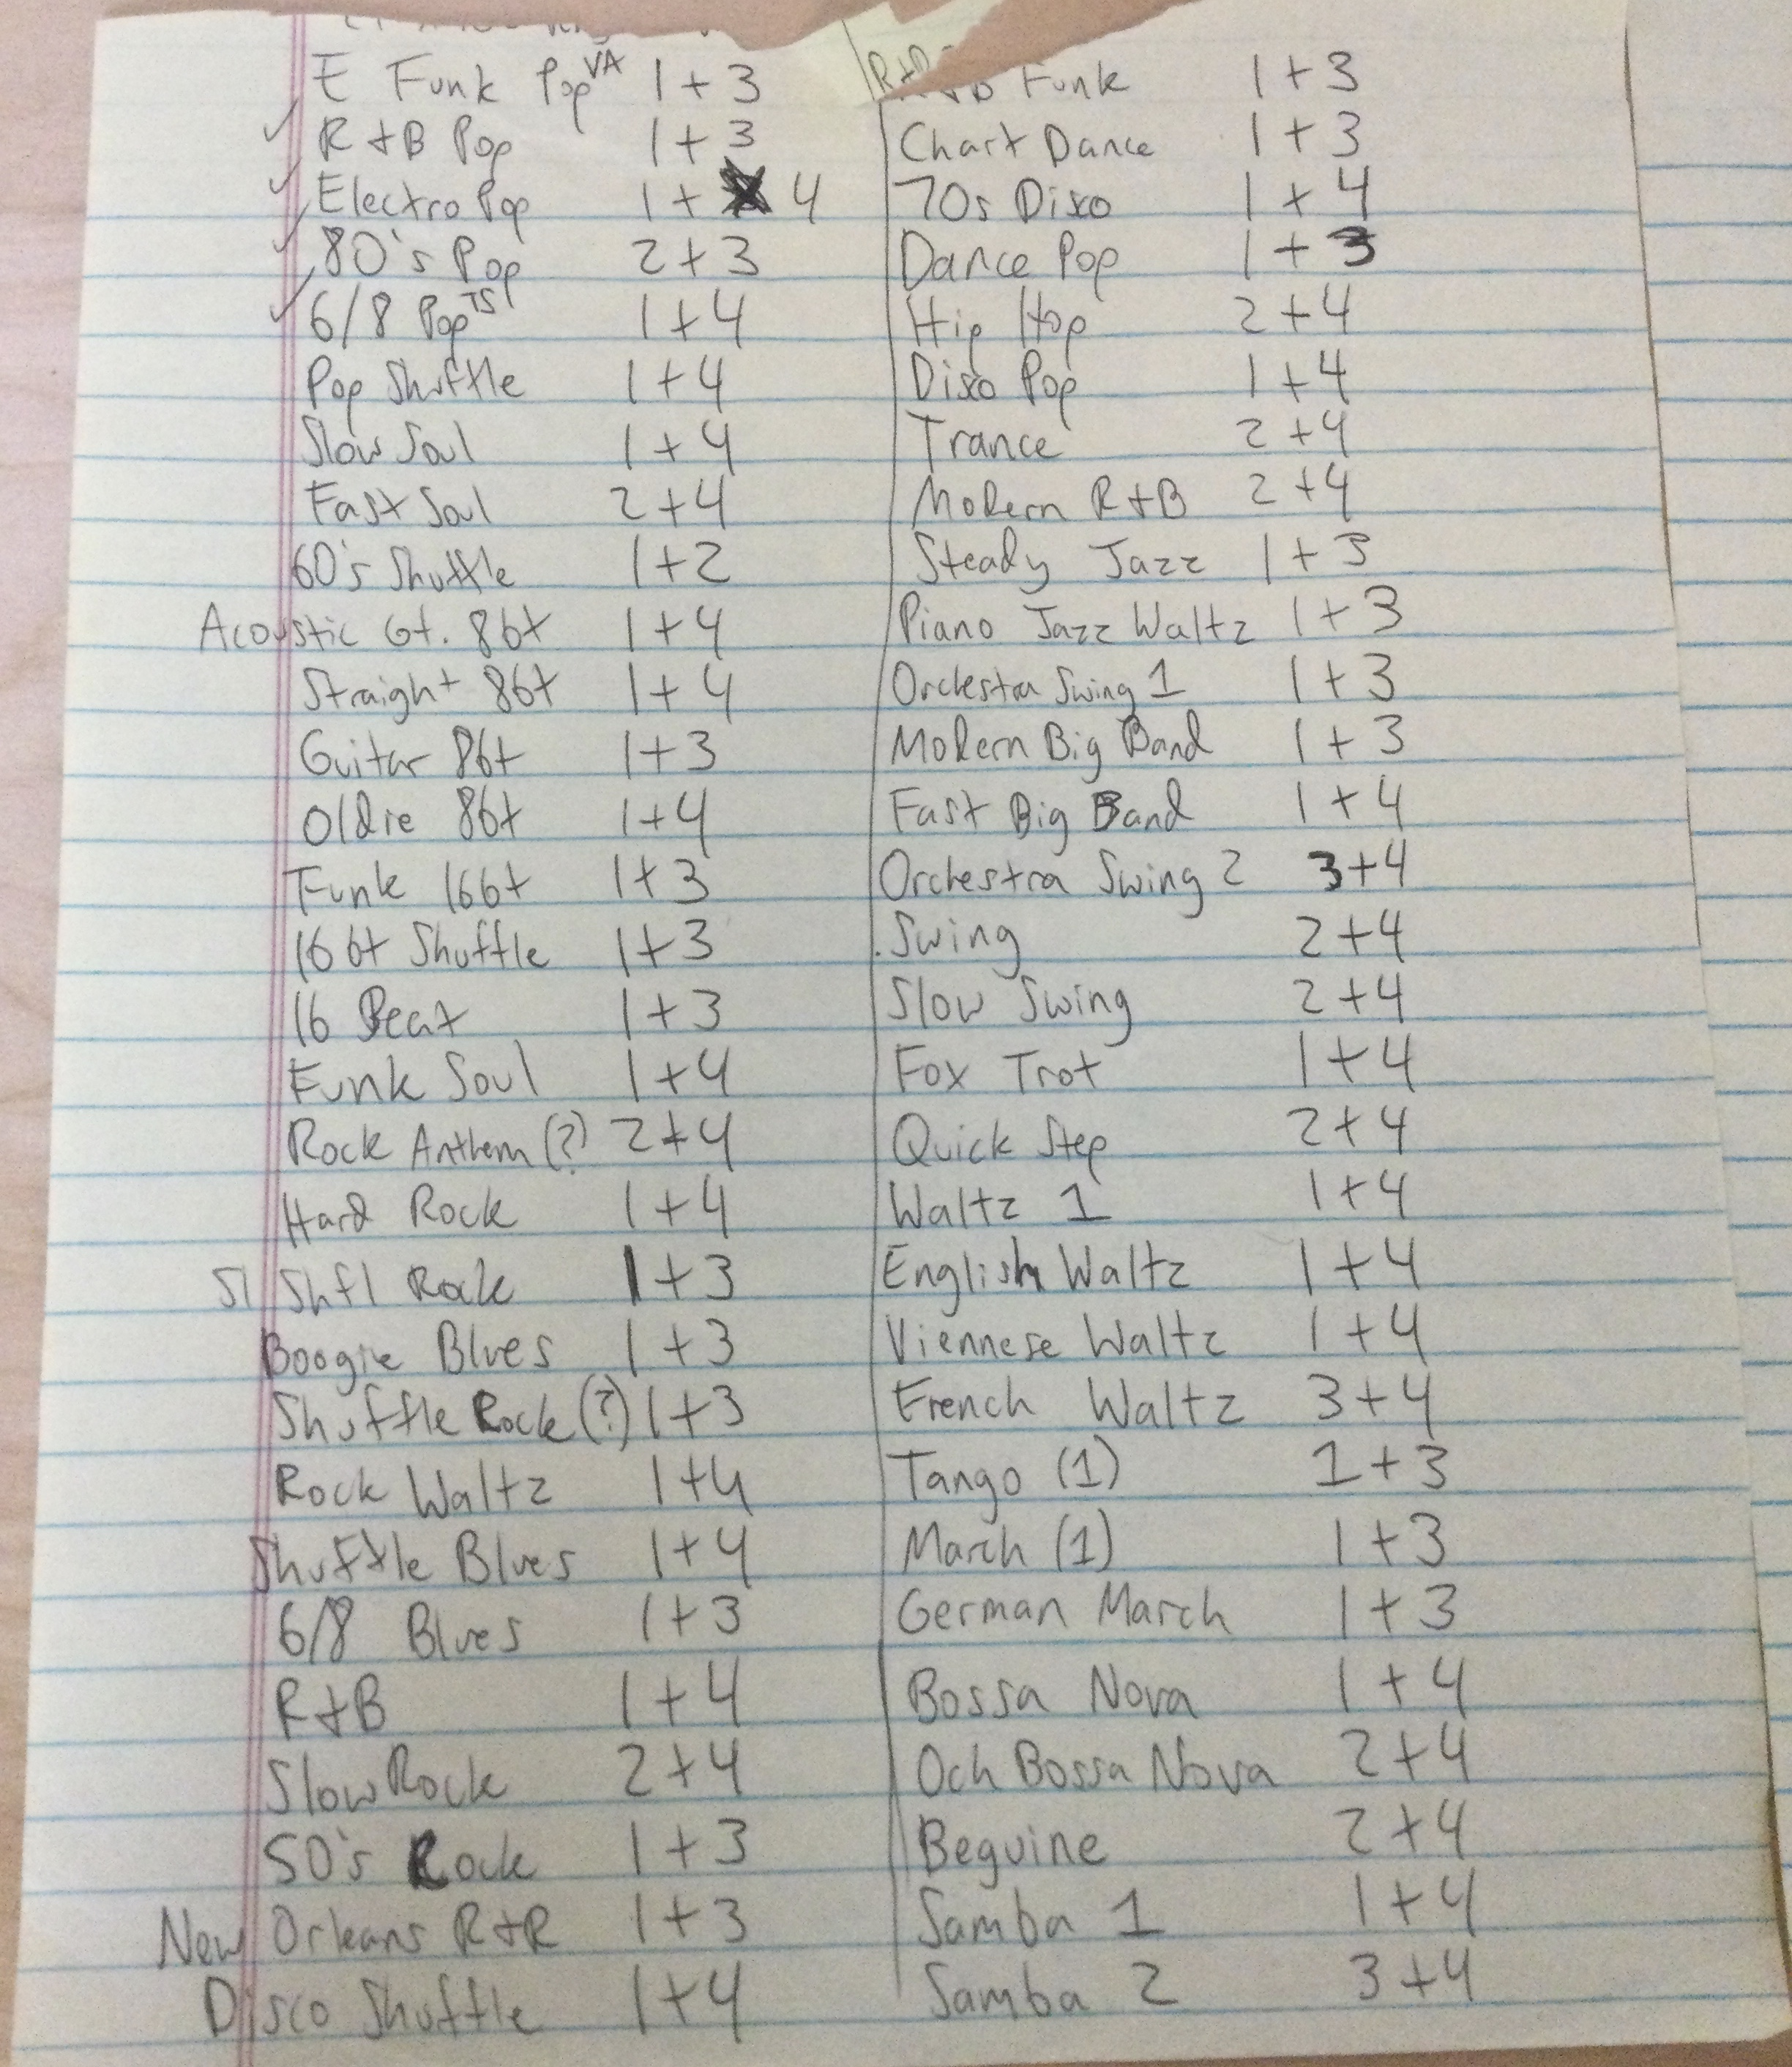 E Funk Pop VA 1 + 3
R + B Pop 1 + 3
Electro Pop 1 + 4
80's Pop 2 + 3
6/8 Pop TS 1 + 4
Pop Shuffle 1 + 4
Slow Soul 1 + 4
Fast Soul 2 + 4
60's Shuffle 1 + 2
Acoustic Gt. 8bt 1 + 4
Straight 8bt 1 + 4
Guitar 8bt 1 + 3
Oldie 8bt 1 + 4
Funk 16bt 1 + 3
16 bt Shuffle 1 + 3
16 Beat 1 + 3
Funk Soul 1 + 4
Rock Anthem (?) 2 + 4
Hard Rock 1 + 4
Sl Shfl Rock 1 + 3
Boogie Blues 1 + 3
Shuffle Rock (?) 1 + 3
Rock Waltz 1 + 4
Shuffle Blues 1 + 4
6/8 Blues 1 + 3
R + B 1 + 4
Slow Rock 2 + 4
50's Rock 1 + 3
New Orleans R + R 1 + 3
Disco Shuffle 1 + 4
Funk 1 + 3
Chart Dance 1 + 3
70s Disco 1 + 4
Dance Pop 1 + 3
Hip Hop 2 + 4
Disco Pop 1 + 4
Trance 2 + 4
Modern R + B 2 + 4
Steady Jazz 1 + 3
Piano Jazz Waltz 1 + 3
Orchestra Swing 1 1 + 3
Modern Big Band 1 + 3
Fast Big Band 1 + 4
Orchestra Swing 2 3 + 4
Swing 2 + 4
Slow Swing 2 + 4
Fox Trot 1 + 4
Quick Step 2 + 4
Waltz 1 1 + 4
English Waltz 1 + 4
Viennese Waltz 1 + 4
French Waltz 3 + 4
Tango (1) 1 + 3
March (1) 1 + 3
German March 1 + 3
Bossa Nova 1 + 4
Och Bossa Nova 2 + 4
Beguine 2 + 4
Samba 1 1 + 4
Samba 2 3 + 4